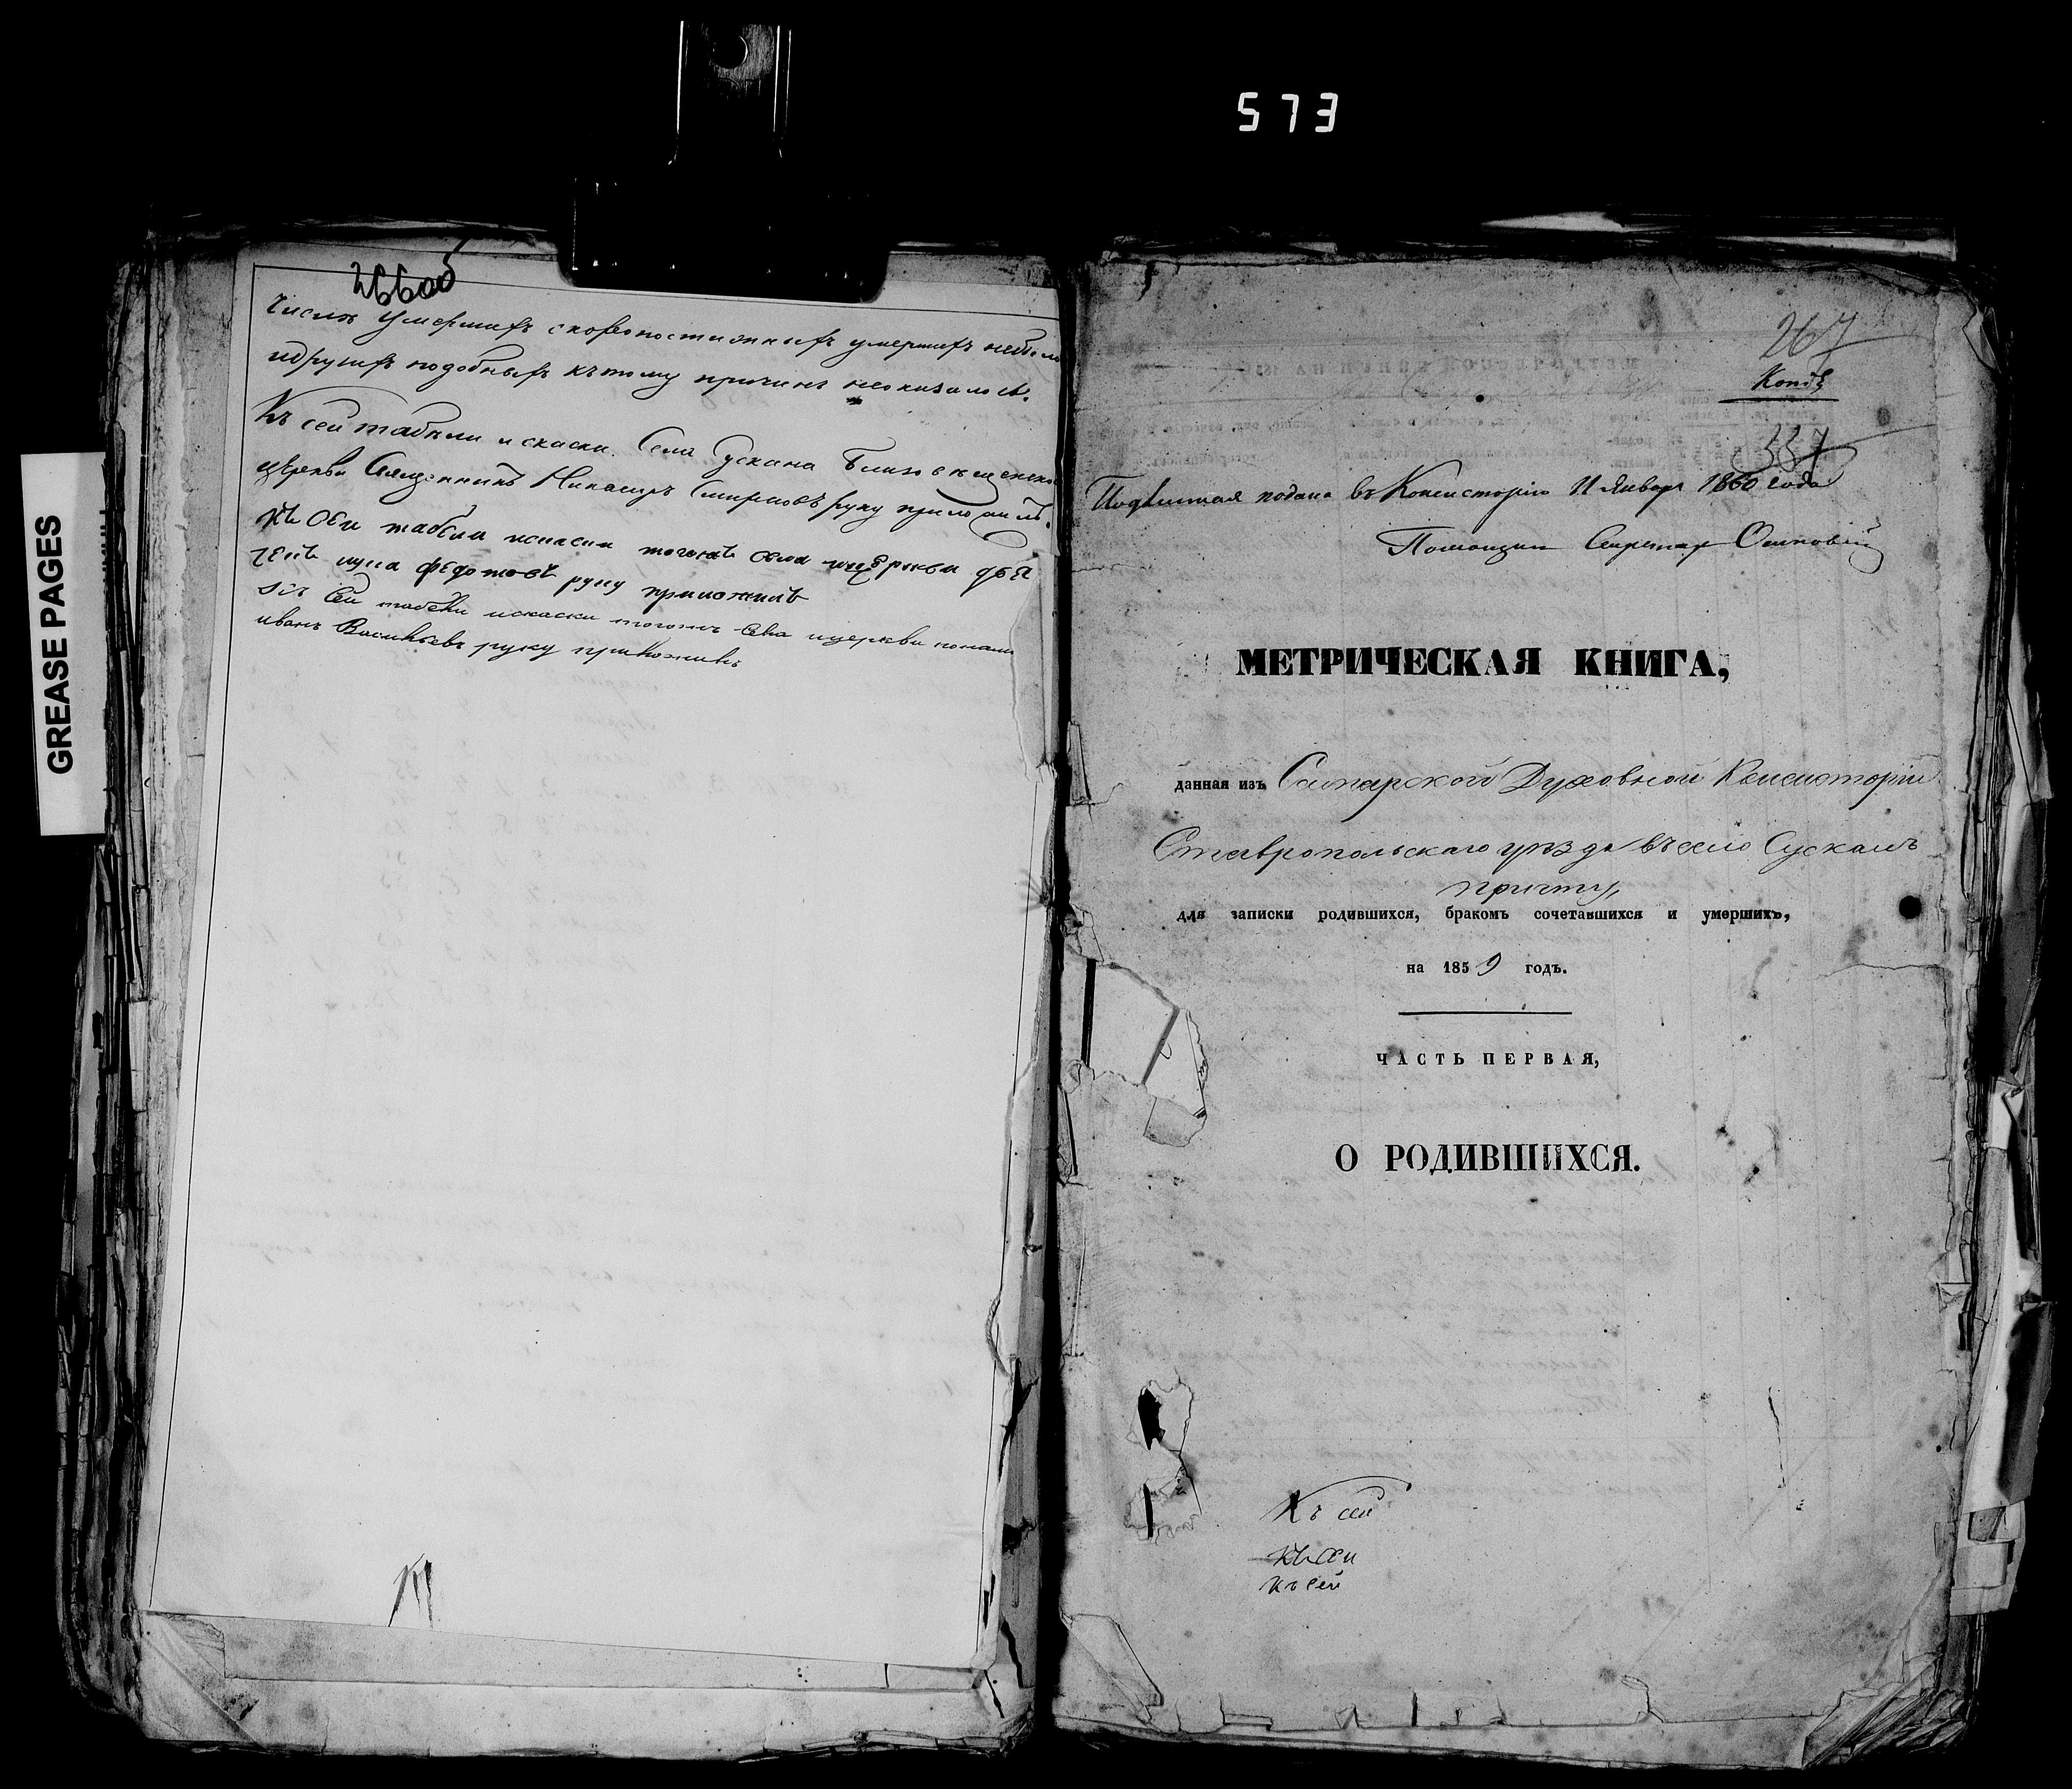 573
GREASE PAGES
266 об
числа умершихъ скоропостижныхъ умершихъ небыло
идругихъ подобныхъ къ тому причинъ неоказалось.
Къ сей табели и скаски. Села Сускана Благовещенской
церкви Священникъ Никаноръ Смирновъ руку приложилъ.
Къ сеи табели искаски тогожъ села ицеркви дья
чекъ лука федотовъ руку приложилъ
Къ сей табели искаски тогожъ села ицеркви понам
иванъ Васильевъ руку приложилъ
267
Копія
337
Подлинная подана въ Консисторію 11 Января 1860 года
Помощник Секретар
МЕТРИЧЕСКАЯ КНИГА,
данная изъ Самарской Духовной Консисторіи
Ставропольскаго уѣзда въ село Сусканъ
причту,
для записки родившихся, бракомъ сочетавшихся и умершихъ,
на 1859 годъ.
ЧАСТЬ ПЕРВАЯ,
О РОДИВШИХСЯ.
Къ сей
Къ сеи
Къ сей